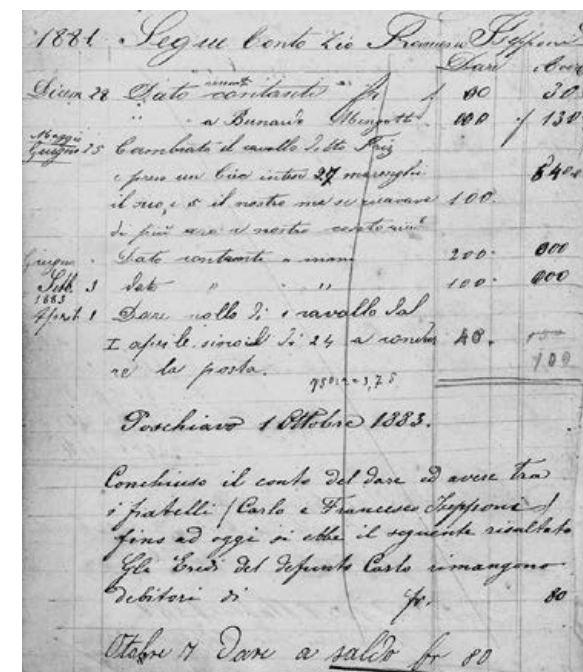 1881 Segue Conto Zio Francesco
Dare Avere
Dicem 28 Dato contanti fr 30
a 000 130
Maggio
Giugno 25 Cambiato il cavallo detto Friz
e preso un 27 marenghi 540
il suo, e 5 il nostro ma si ricavava 100.
di più
Giugno Dato contante a mani 200. 000
Febb. 3 dato " " 100. 000
1883
April. 1 Dare nollo di 1 cavallo dal
I aprile sino al di 24 a condur 48. 150
re la posta. 100
750:2=3,75
Poschiavo 1 Ottobre 1883.
Conchiuso il conto del dare ed avere tra
i fratelli (Carlo e Francesco)
fino ad oggi si ebbe il seguente risultato
Gli Eredi del defunto Carlo rimangono
debitori di fr. 80
Ottobre 7 Dare a saldo fr 80